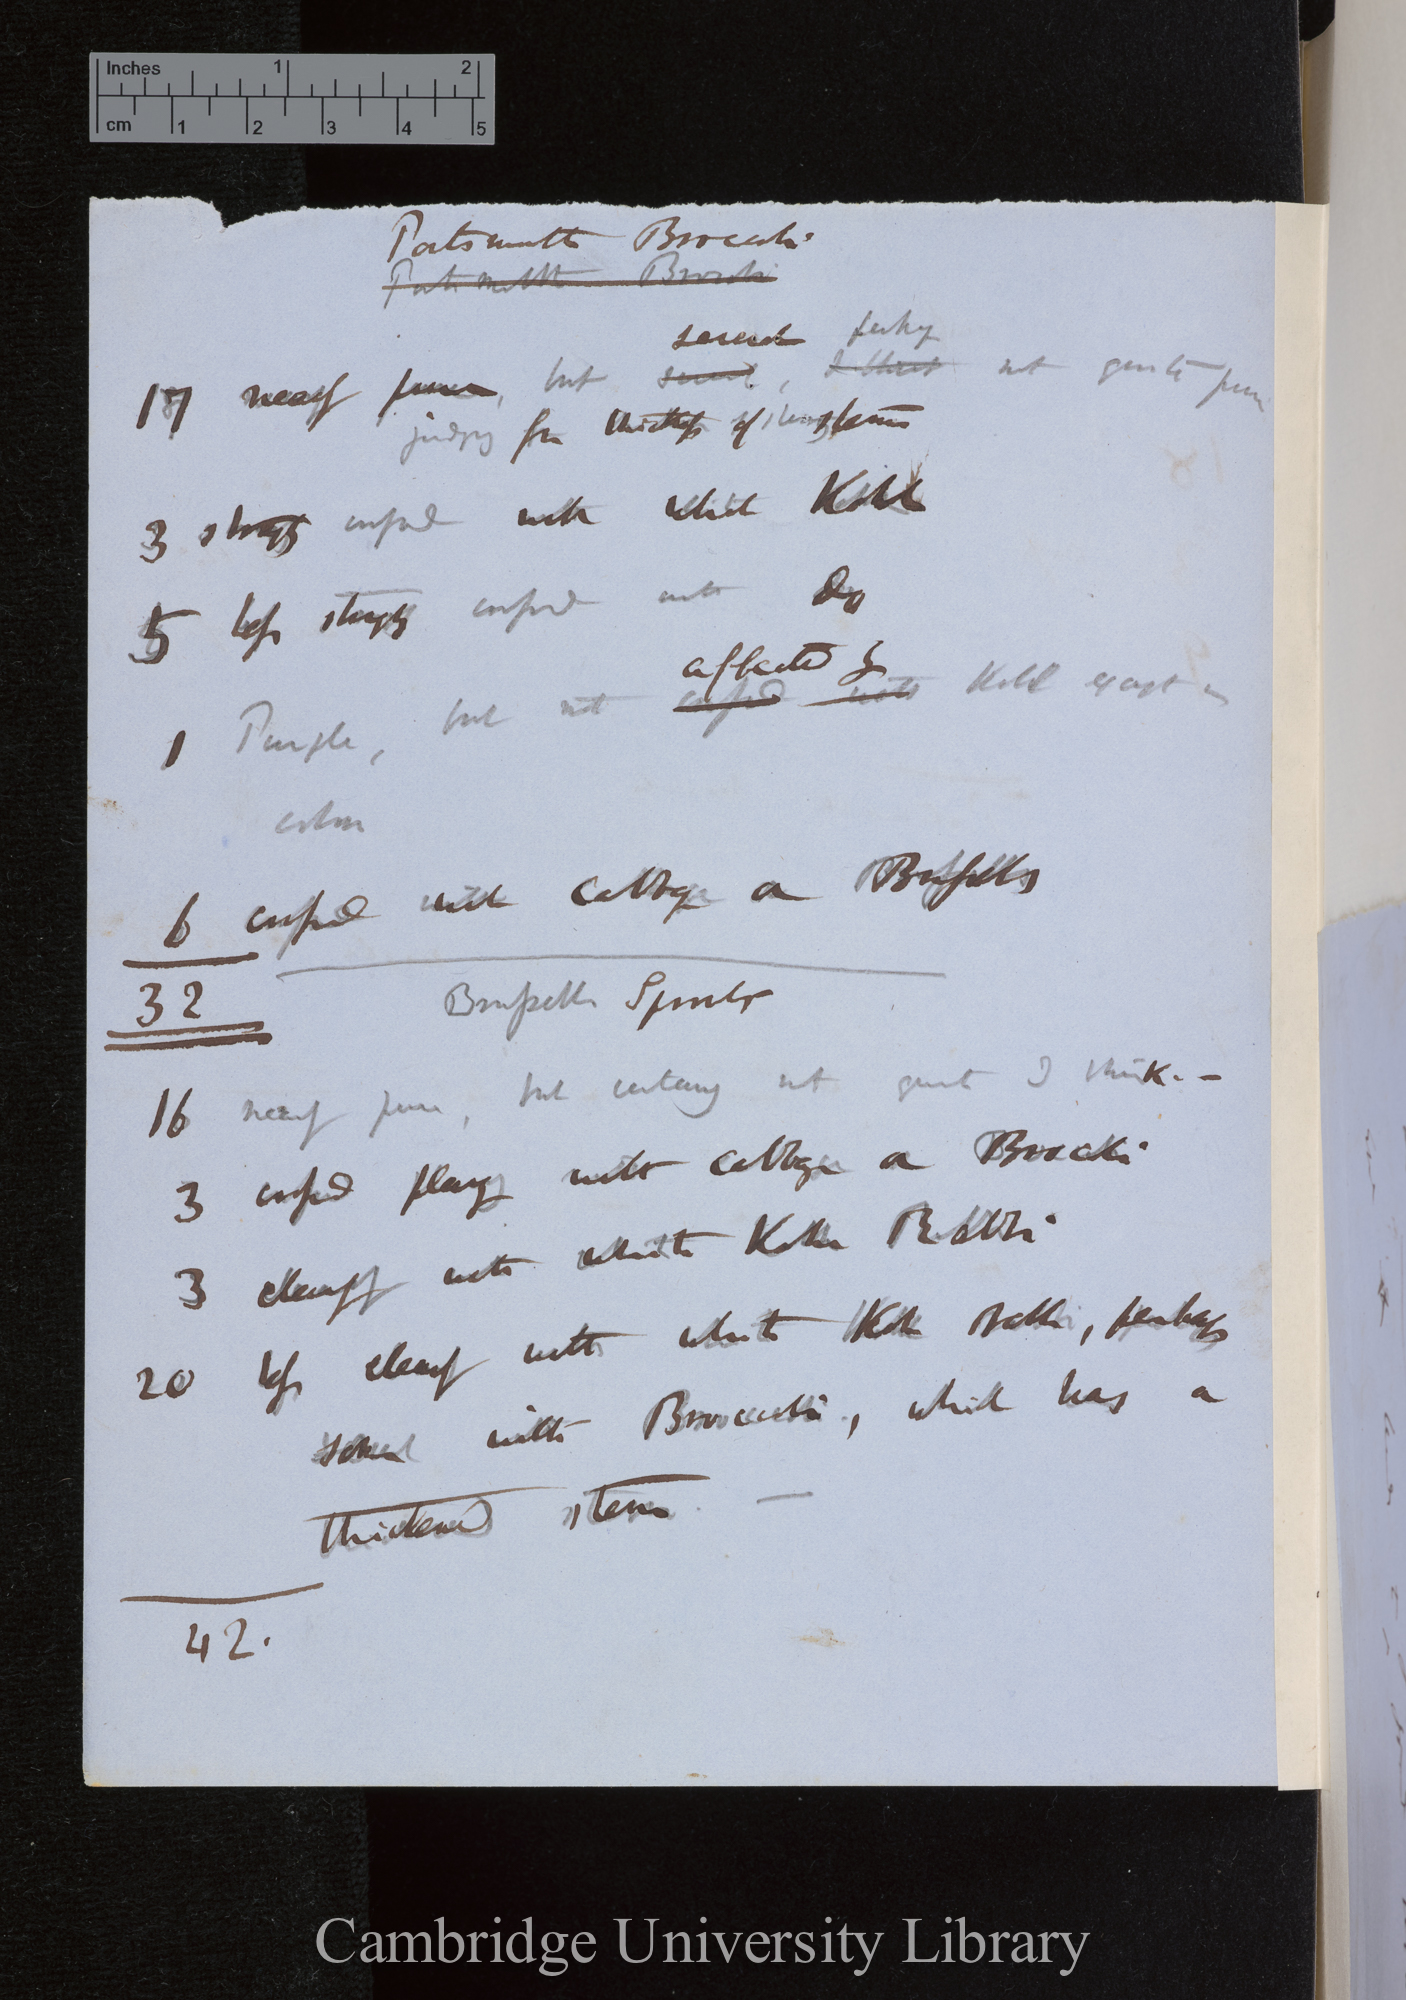 Inches 1 2
cm 1 2 3 4 5
Portsmouth Broccoli
Portsmouth Broccoli
several perhaps
17 nearly pure, but several, not quite pure
judging from thickness of stems
3 strongly crossed with white Kohl
5 less strongly crossed with Do
affected by
1 Purple, but not crossed with Kohl except in
colour
6 crossed with Cabbage or Brussells
32
Brussells Sprouts
16 nearly pure, but certainly not quite I think. —
3 crossed plainly with Cabbage or Broccoli
3 clearly with white Kohl Rabbi
20 less clearly with white Kohl Rabbi, perhaps
some with Broccoli, which has a
thickened stem. —
42.
Cambridge University Library